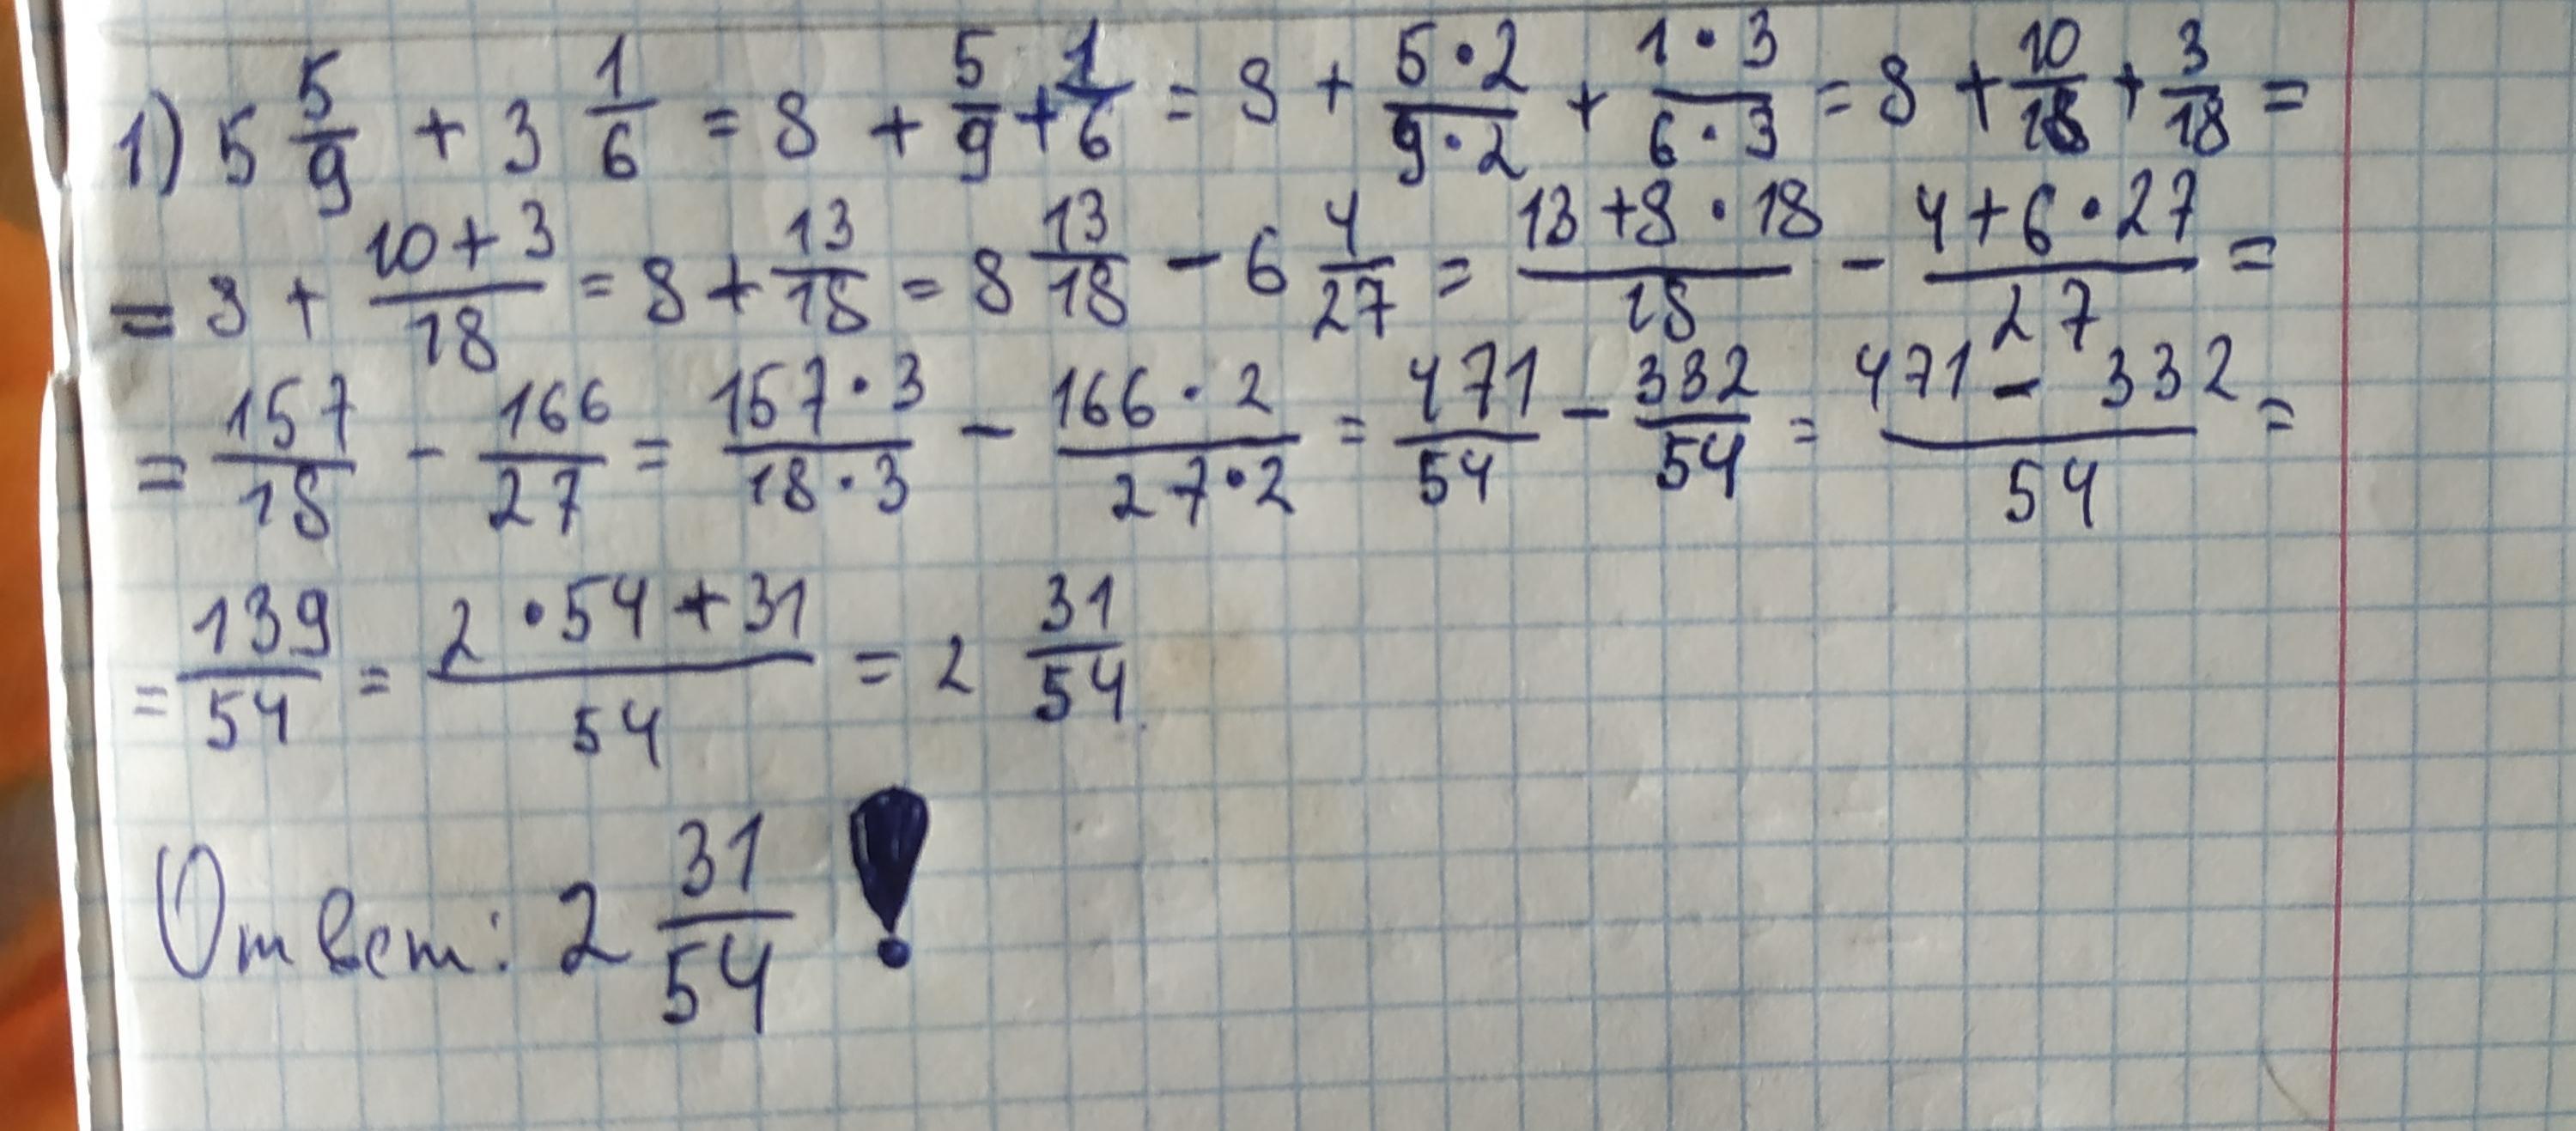 1) 5 5/9 + 3 1/6 = 8 + 5/9 + 1/6 = 8 + 5·2/9·2 + 1·3/6·3 = 8 + 10/18 + 3/18 =
= 8 + 10+3/18 = 8 + 13/18 = 8 13/18 - 6 4/27 = 13+8·18/18 - 4+6·27/27 =
= 157/18 - 166/27 = 157·3/18·3 - 166·2/27·2 = 471/54 - 332/54 = 471-332/54 =
= 139/54 = 2·54+31/54 = 2 31/54
Ответ: 2 31/54 !